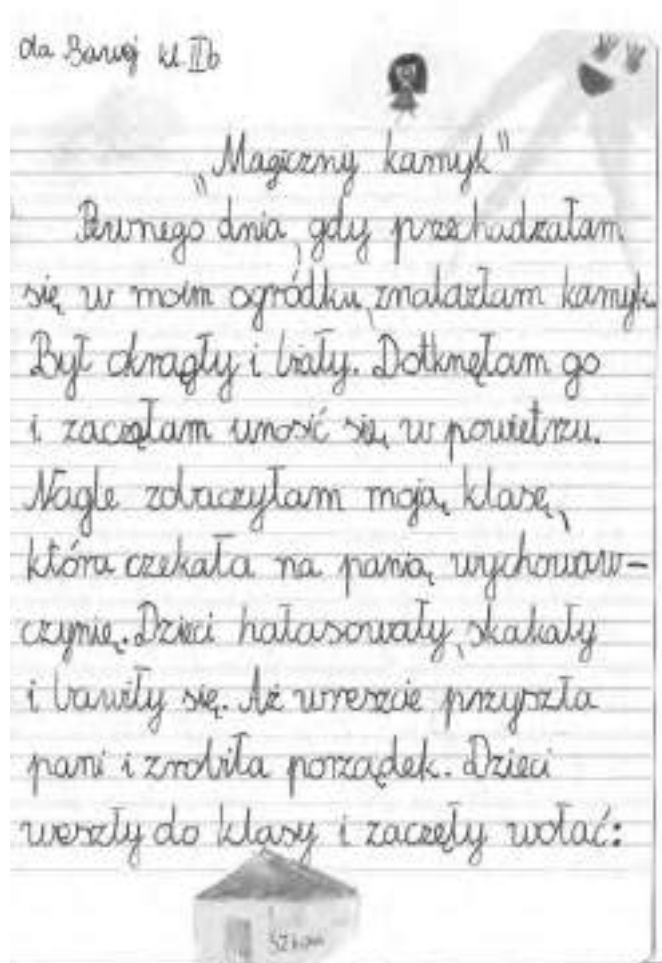 kl. II b
„Magiczny kamyk"
Pewnego dnia, gdy przechadzałam
się w moim ogródku, znalazłam kamyk.
Był okrągły i biały. Dotknęłam go
i zaczęłam unosić się w powietrzu.
Nagle zobaczyłam moją klasę,
która czekała na panią wychowaw-
czynię. Dzieci hałasowały, skakały
i bawiły się. Aż wreszcie przyszła
pani i zrobiła porządek. Dzieci
weszły do klasy i zaczęły wołać: